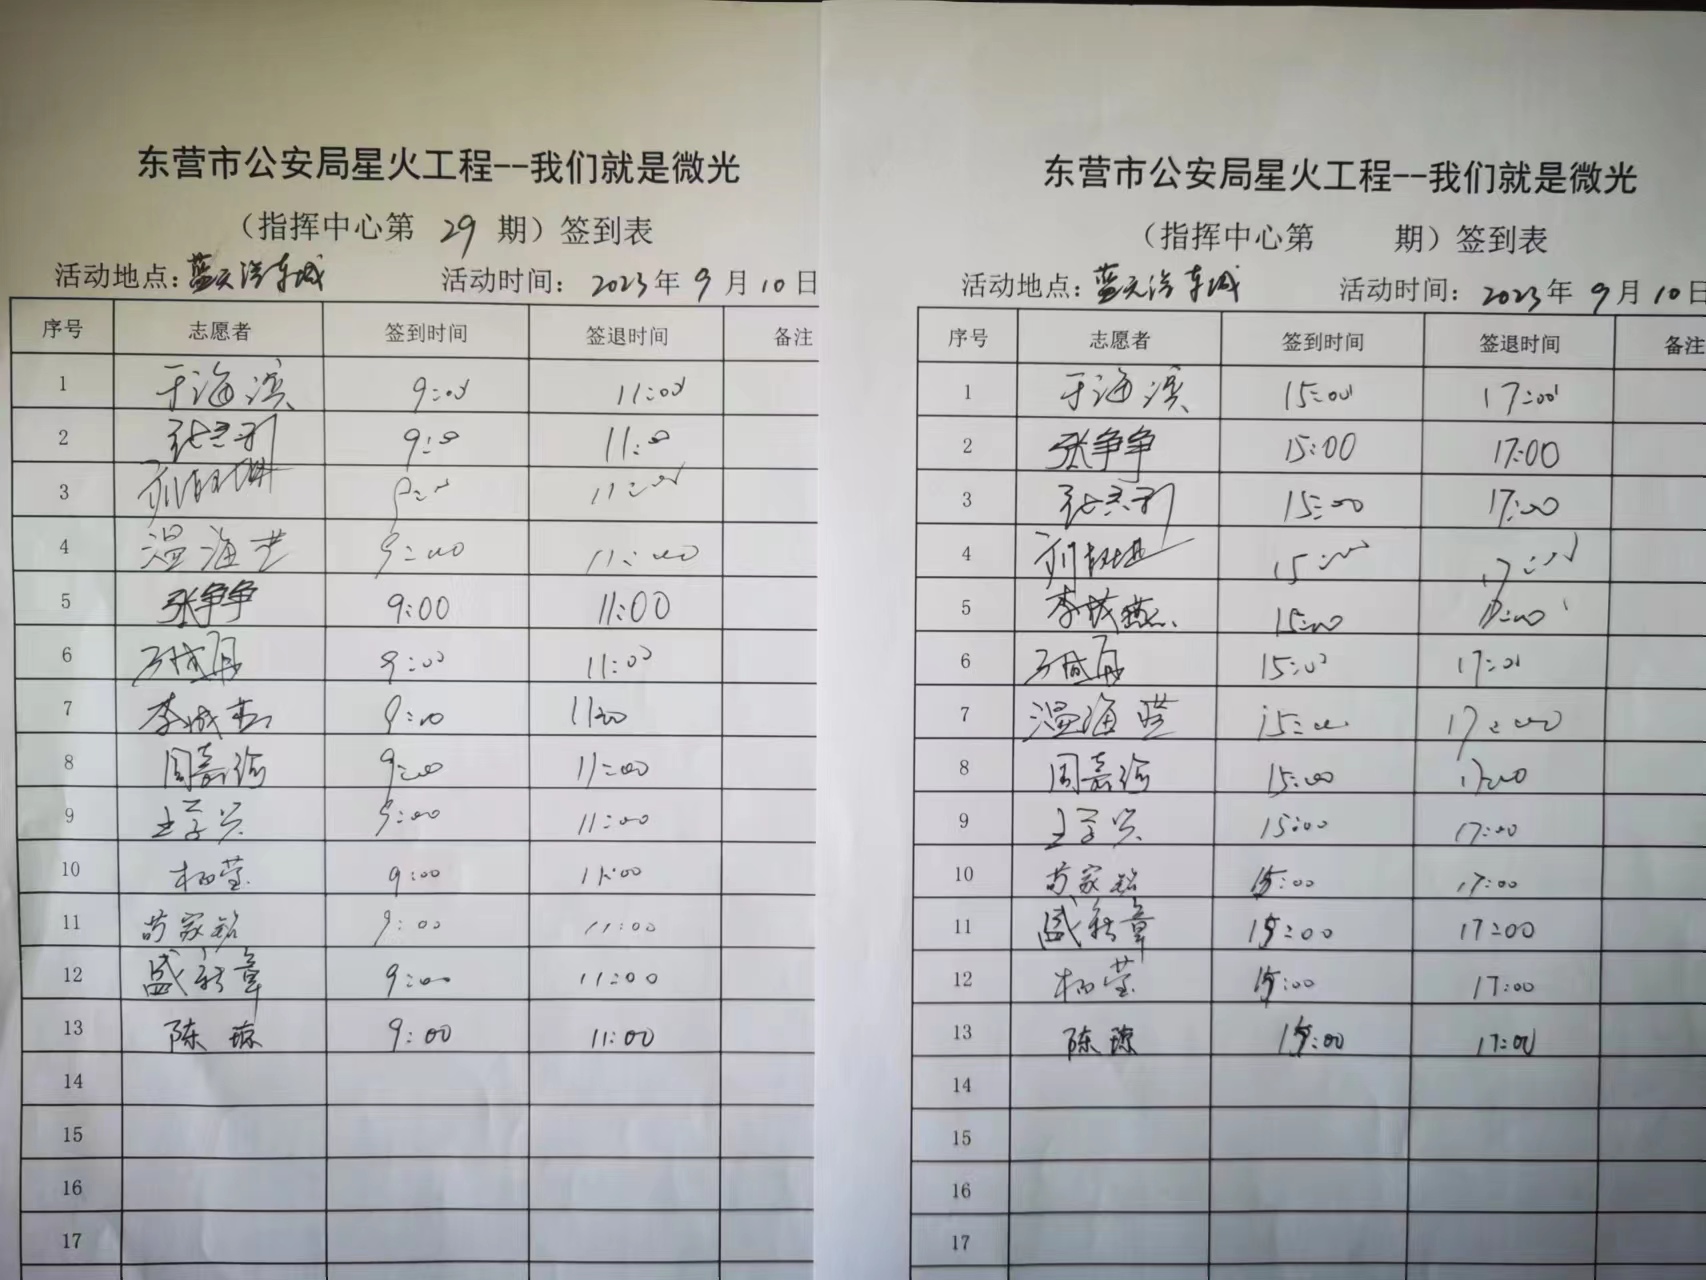 东营市公安局星火工程--我们就是微光
（指挥中心第 29 期）签到表
活动地点：蓝天汽车城 活动时间：2023年9月10日
序号 志愿者 签到时间 签退时间 备注
1 于海滨 9:00 11:00
2 9:00 11:00
3 9:00 11:00
4 温海 9:00 11:00
5 张争争 9:00 11:00
6 9:00 11:00
7 李城 9:00 11:00
8 周嘉 9:00 11:00
9 王学兴 9:00 11:00
10 杨莹 9:00 11:00
11 苗家铭 9:00 11:00
12 盛 章 9:00 11:00
13 陈琼 9:00 11:00
14
15
16
17
东营市公安局星火工程--我们就是微光
（指挥中心第 期）签到表
活动地点：蓝天汽车城 活动时间：2023年9月10日
序号 志愿者 签到时间 签退时间 备注
1 于海滨 15:00 17:00
2 张争争 15:00 17:00
3 15:00 17:00
4 15:00 17:00
5 李城燕 15:00 17:00
6 15:00 17:00
7 温海 15:00 17:00
8 周嘉 15:00 17:00
9 王学兴 15:00 17:00
10 苗家铭 15:00 17:00
11 盛 章 15:00 17:00
12 杨莹 15:00 17:00
13 陈琼 15:00 17:00
14
15
16
17